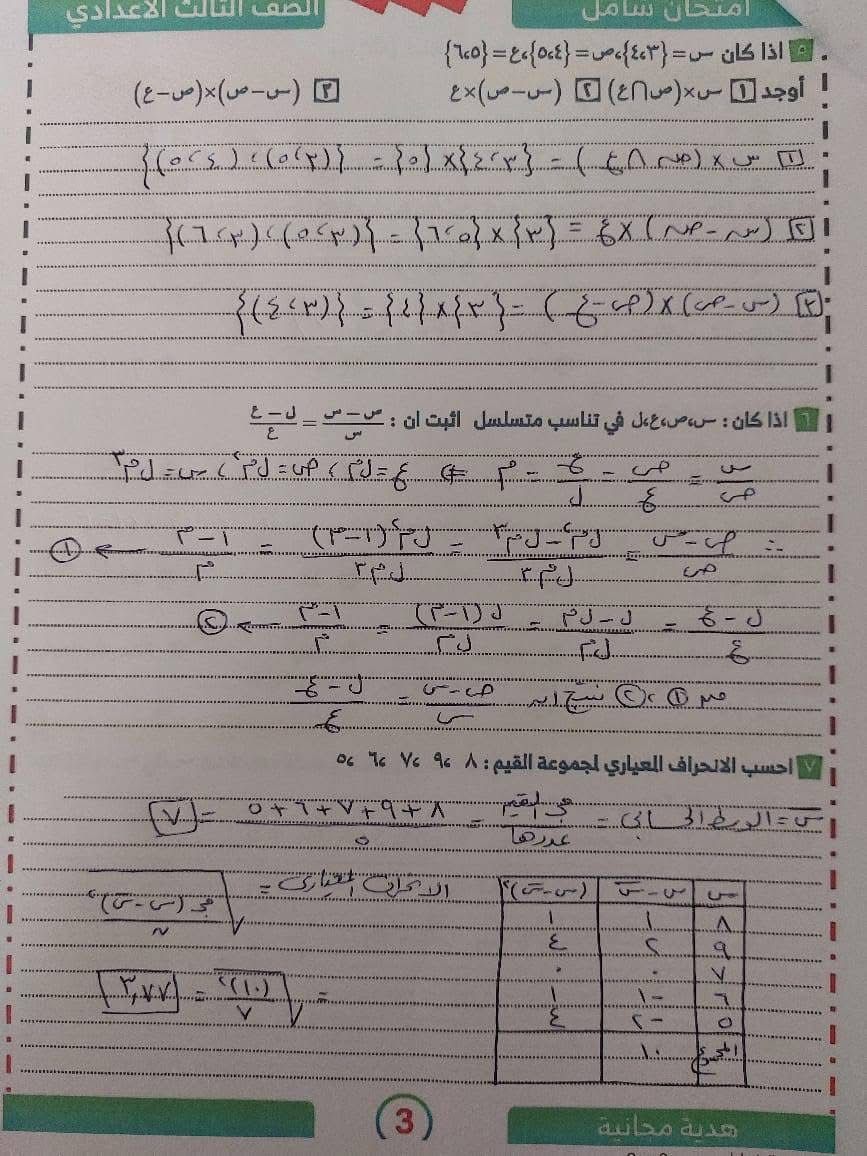 امتحان شامل
الصف الثالث الاعدادي
٥ اذا كان س={٣،٤}،ص={٤،٥}،ع={٥،٦}
أوجد ١ س×(ص∩ع) ٢ (س-ص)×ع ٣ (س-ص)×(ص-ع)
١ س × (ص ∩ ع) = {٣،٤} × {٥} = {(٣،٥)،(٤،٥)}
٢ (س-ص) × ع = {٣} × {٥،٦} = {(٣،٥)،(٣،٦)}
٣ (س-ص) × (ص-ع) = {٣} × {٤} = {(٣،٤)}
٦ اذا كان : س،ص،ع،ل في تناسب متسلسل اثبت ان : (ص-س)/س = (ل-ع)/ع
س/ص = ص/ع = ع/ل = م ⇐ ع=لم ، ص=لم² ، س=لم³
∴ (ص-س)/ص = (لم²-لم³)/لم³ = لم²(١-م)/لم³ = (١-م)/م ← ①
(ل-ع)/ع = (ل-لم)/لم = ل(١-م)/لم = (١-م)/م ← ②
من ① ، ② ينتج ان (ص-س)/س = (ل-ع)/ع
٧ احسب الانحراف العياري لمجموعة القيم : ٨ ،٩ ،٧ ،٦ ،٥
س̄ = الوسط الحسابي = مجـ القيم/عددها = (٨+٩+٧+٦+٥)/٥ = ٧
س س-س̄ (س-س̄)²
الانحراف المعياري = √(مجـ(س-س̄)²/ن)
٨ ١ ١
٩ ٢ ٤
٧ ٠ ٠
٦ -١ ١
٥ -٢ ٤
المجموع ١٠
= √((١٠)²/٧) = ٣,٧٧
هدية مجانية
3